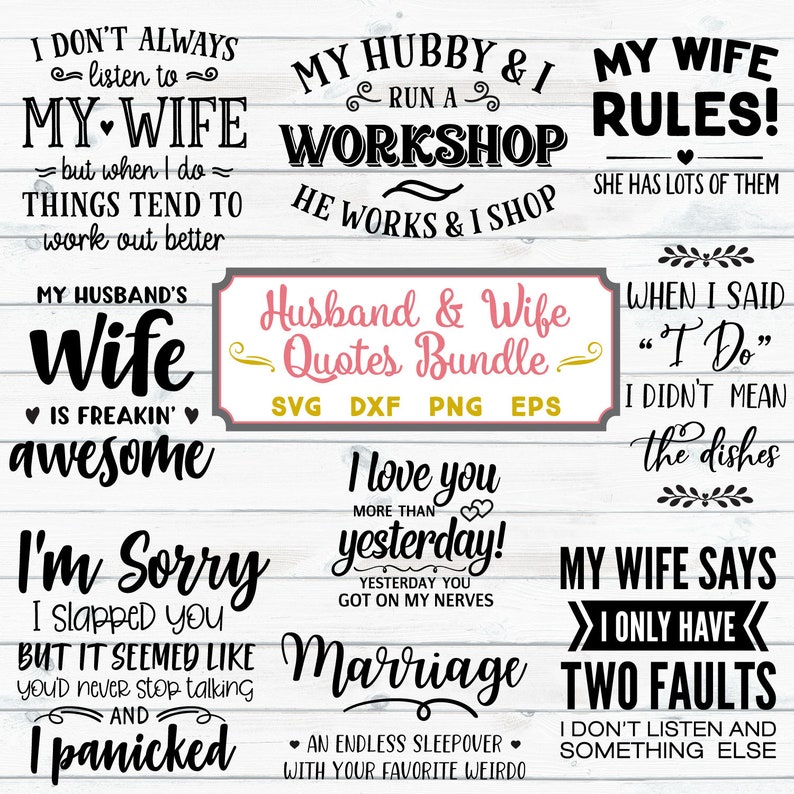 I DON'T ALWAYS
listen to
MY WIFE
but when I do
THINGS TEND TO
work out better
MY HUBBY & I
RUN A
WORKSHOP
HE WORKS & I SHOP
MY WIFE
RULES!
SHE HAS LOTS OF THEM
MY HUSBAND'S
Wife
IS FREAKIN'
awesome
Husband & Wife
Quotes Bundle
SVG DXF PNG EPS
WHEN I SAID
"I Do"
I DIDN'T MEAN
the dishes
I'm Sorry
I SLAPPED YOU
BUT IT SEEMED LIKE
YOU'D NEVER STOP TALKING
AND
I panicked
I love you
MORE THAN
yesterday!
YESTERDAY YOU
GOT ON MY NERVES
Marriage
AN ENDLESS SLEEPOVER
WITH YOUR FAVORITE WEIRDO
MY WIFE SAYS
I ONLY HAVE
TWO FAULTS
I DON'T LISTEN AND
SOMETHING ELSE